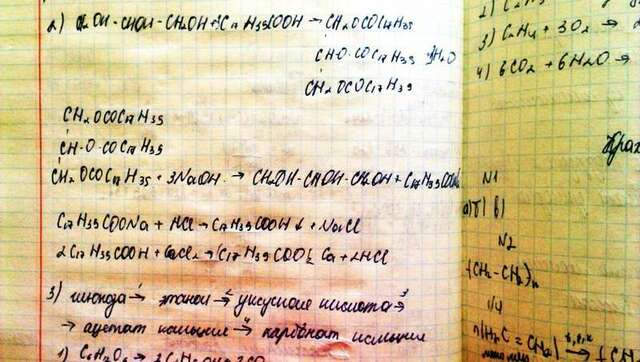 2) CH₂OH-CHOH-CH₂OH + 3C₁₇H₃₅COOH → CH₂OCOC₁₇H₃₅
CH-O-COC₁₇H₃₅ + 3H₂O
CH₂OCOC₁₇H₃₅
CH₂OCOC₁₇H₃₅
CH-O-COC₁₇H₃₅
CH₂OCOC₁₇H₃₅ + 3NaOH → CH₂OH-CHOH-CH₂OH + C₁₇H₃₅COONa
C₁₇H₃₅COONa + HCl → C₁₇H₃₅COOH ↓ + NaCl
2C₁₇H₃₅COOH + CaCl₂ → (C₁₇H₃₅COO)₂ Ca + 2HCl
3) глюкоза →¹ этанол →² уксусная кислота →³
→ ацетат кальция →⁴ карбонат кальция
1) C₆H₁₂O₆ → 2C₂H₅OH + 2CO₂
3) C₂H₄ + 3O₂ →
4) 6CO₂ + 6H₂O →
N1
а) б) в)
N2
(CH₂-CH₂)ₙ
n(H₂C = CH₂) →